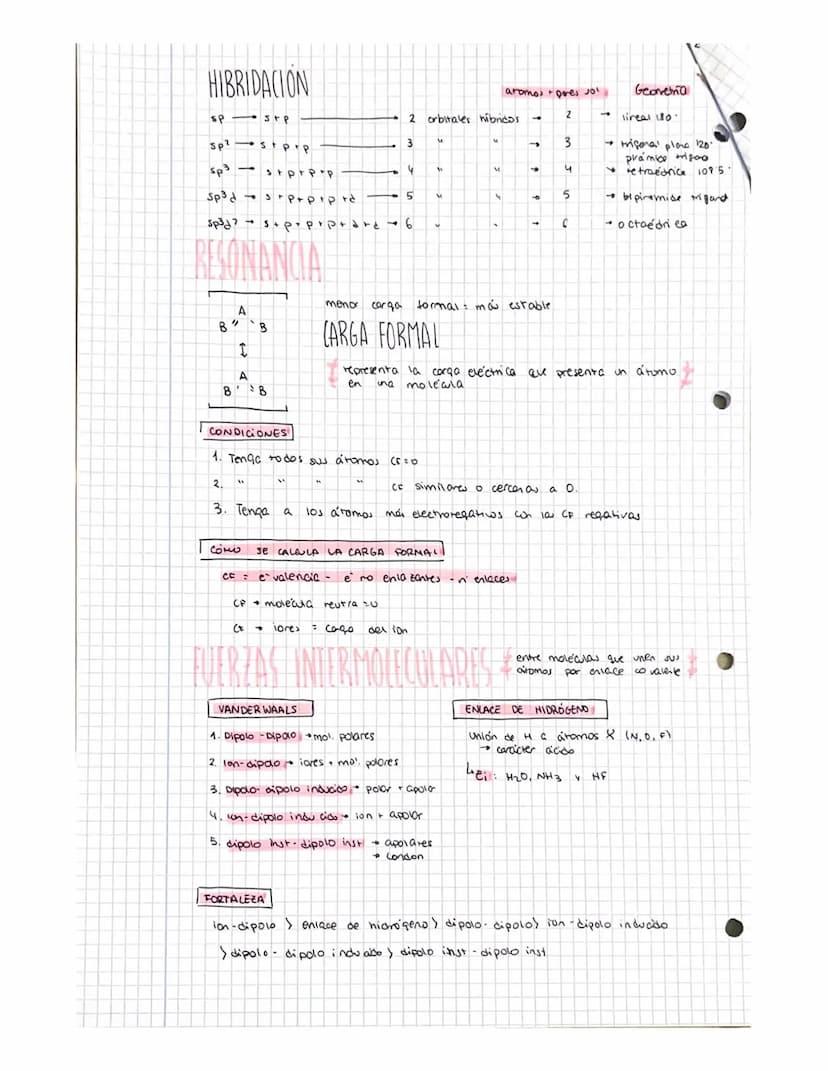 HIBRIDACIÓN
átomos + pares sol Geometría
sp → s+p → 2 orbitales híbridos → 2 → lineal 180°
sp² → s+p+p → 3 " " → 3 → trigonal plana 120°
pirámide trigonal
sp³ → s+p+p+p → 4 " " → 4 → tetraédrica 109'5°
sp³d → s+p+p+p+d → 5 " " → 5 → bipirámide trigonal
sp³d² → s+p+p+p+d+d → 6 " " → 6 → octaédrica
RESONANCIA
A
B B
↕
A
B B
menor carga formal = más estable
CARGA FORMAL
representa la carga eléctrica que presenta un átomo
en una molécula
CONDICIONES
1. Tenga todos sus átomos CF=0
2. " " " " CF similares o cercanas a 0.
3. Tenga a los átomos más electronegativos con las CF negativas
CÓMO SE CALCULA LA CARGA FORMAL
CF = e⁻ valencia - e⁻ no enlazantes - nº enlaces
CF → molécula neutra = 0
CF → iones = carga del ion
FUERZAS INTERMOLECULARES
entre moléculas que unen sus
átomos por enlace covalente
VANDERWAALS
1. Dipolo - Dipolo → mol. polares
2. Ion-dipolo → iones + mol. polares
3. Dipolo- dipolo inducido → polar + apolar
4. ion-dipolo inducido → ion + apolar
5. dipolo inst - dipolo inst → apolares
→ London
ENLACE DE HIDRÓGENO
Unión de H a átomos X (N, O, F)
→ carácter ácido
↳ Ej: H₂O, NH₃ y HF
FORTALEZA
ion-dipolo > enlace de hidrógeno > dipolo- dipolo > ion - dipolo inducido
> dipolo - dipolo inducido > dipolo inst - dipolo inst